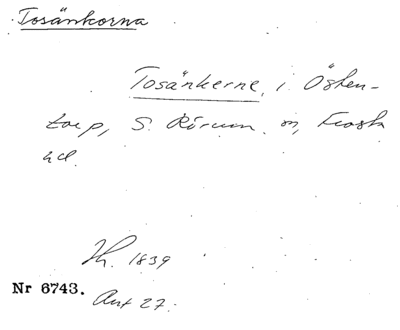 Tosänkorna
Tosänkerne, i Östen-
torp, S. Rörum, sn, Frosta
hd.
Th. 1839
Nr 6743.
Ant 27.